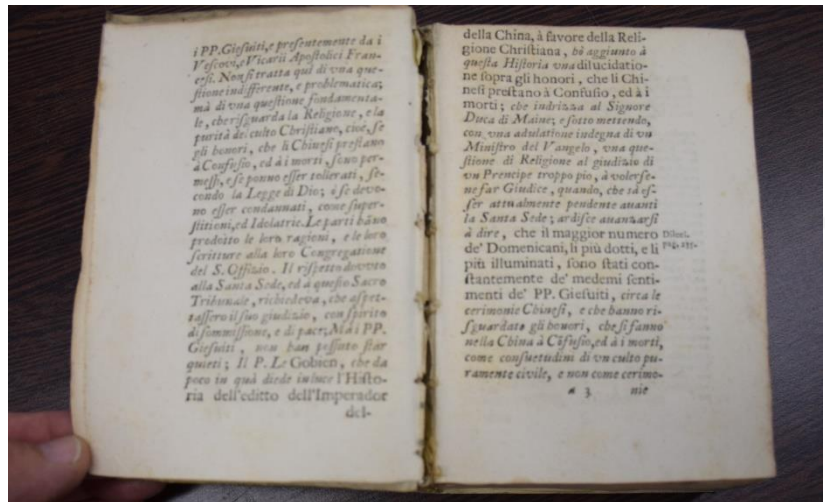 i PP. Giesuiti, e presentemente da i
Vescovi, e Vicarii Apostolici Fran-
cesi. Non si tratta quì di vna que-
stione indifferente, e problematica;
mà di vna questione fondamenta-
le, che risguarda la Religione, e la
purità del culto Christiano, cioè, se
gli honori, che li Chinesi prestano
à Confusio, ed à i morti, sono per-
messi, e se ponno esser tollerati, se-
condo la Legge di Dio; ò se devo-
no esser condannati, come super-
stitioni, ed Idolatrie. Le parti hãno
prodotto le loro ragioni, e le loro
scritture alla loro Congregatione
del S. Offizio. Il rispetto dovuto
alla Santa Sede, ed à questo Sacro
Tribunale, richiedeva, che aspet-
tassero il suo giudizio, con spirito
di sommissione, e di pace; Mà i PP.
Giesuiti, non han possuto star
quieti; Il P. Le Gobien, che da
poco in quà diede in luce l'Histo-
ria dell'editto dell'Imperador
del-
della China, à favore della Reli-
gione Christiana, hà aggiunto à
questa Historia vna dilucidatio-
ne sopra gli honori, che li Chi-
nesi prestano à Confusio, ed à i
morti; che indrizza al Signore
Duca di Maine; e sotto mettendo,
con vna adulatione indegna di vn
Ministro del Vangelo, vna que-
stione di Religione al giudizio di
vn Prencipe troppo pio, à volerse-
ne far Giudice, quando, che sà es-
ser attualmente pendente avanti
la Santa Sede; ardisce avanzarsi
à dire, che il maggior numero
de' Domenicani, li più dotti, e li
più illuminati, sono stati con-
stantemente de' medemi senti-
menti de' PP. Giesuiti, circa le
cerimonie Chinesi, e che hanno ri-
sguardato gli honori, che si fanno
nella China à Cõfusio, ed à i morti,
come consuetudini di vn culto pu-
ramente civile, e non come cerimo-
a 3 nie